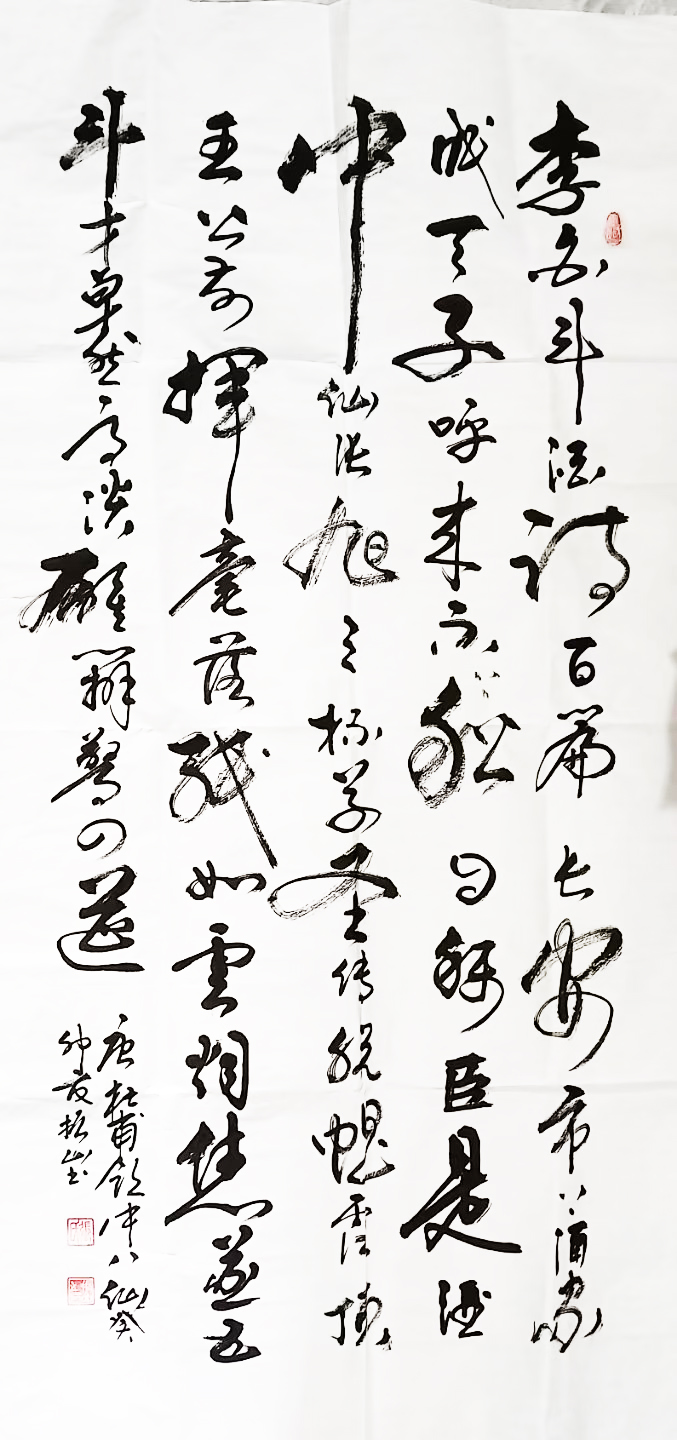 李白斗酒诗百篇长安市上酒家
眠天子呼来不上船自称臣是酒
中仙张旭三杯草圣传脱帽露顶
王公前揮毫落纸如雲烟焦遂五
斗才卓然高谈雄辩驚四筵
唐杜甫饮中八仙癸
仲夏振山书